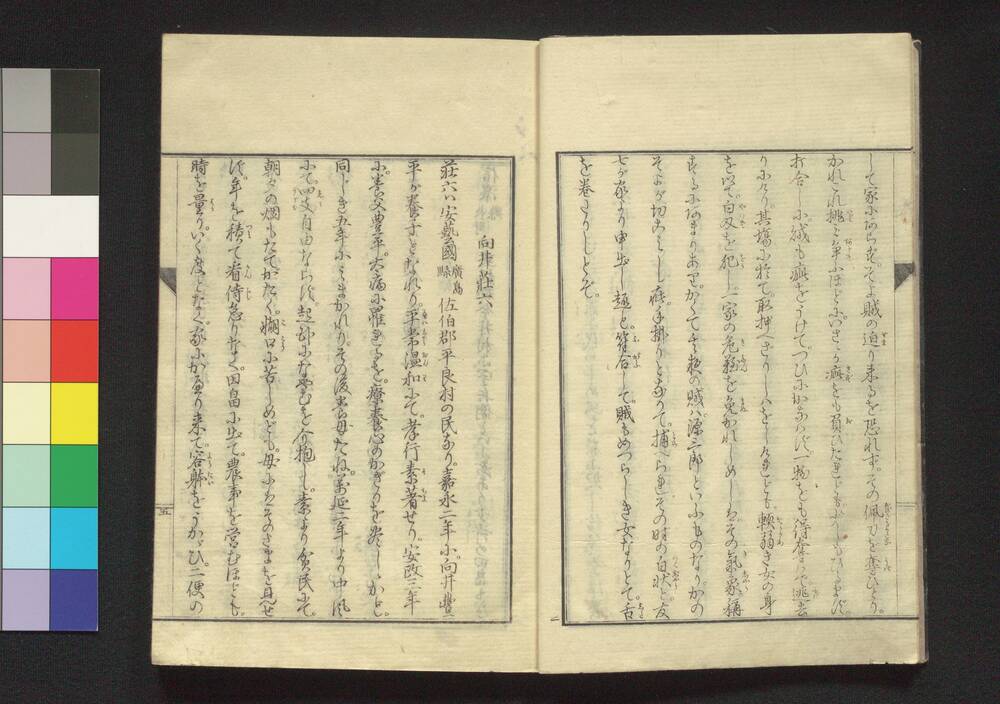 して家にあらずそよ賊の迫り来るを恐れず。その佩刀を奪ひとり。
かれこれ挑み争ふほどに。いさゝか疵をも負ひたれどもすこしもひるまず。
打合しに賊も疵をうけて。つひにかなはず。一物をも得奪はで逃去
りにけり。其場に於て。取押へざりしハをしけれども。軟弱き女の身
を以て白刃を犯し。一家の危難を免かれしめしハ。その氣象稱
するにあまりありけり。かくてその夜の賊ハ源三郎といふものなり。かの
そよが切こみし疵手掛りとなりて。捕へられその時の白状と。友
七が家より申出し趣と符合して。賊もめづらしき女なりとて。舌
を巻きたりしとぞ。
向井莊六
莊六ハ安藝國廣島縣佐伯郡平良村の民なり。嘉永二年に向井豐
平が養子となれり。平常温和にて。孝行素著せり。安政三年
に。養父豊平。大病に罹れるを。療養心のかぎりを尽しゝかど。
同じき五年にミまかれりその後養母たね。萬延二年より中風
にて四支自由ならず。起卧になやむを介抱し。素より貧民にて
朝夕の烟もたてがたく。糊口に苦しめども。母にハそのさまを見せ
ず。年を積て看侍怠りなく。田畠に出て。農事を営むほどにも。
時を量り。いく度となく家にかへり来て。容躰をうかゞひ。二便の
五